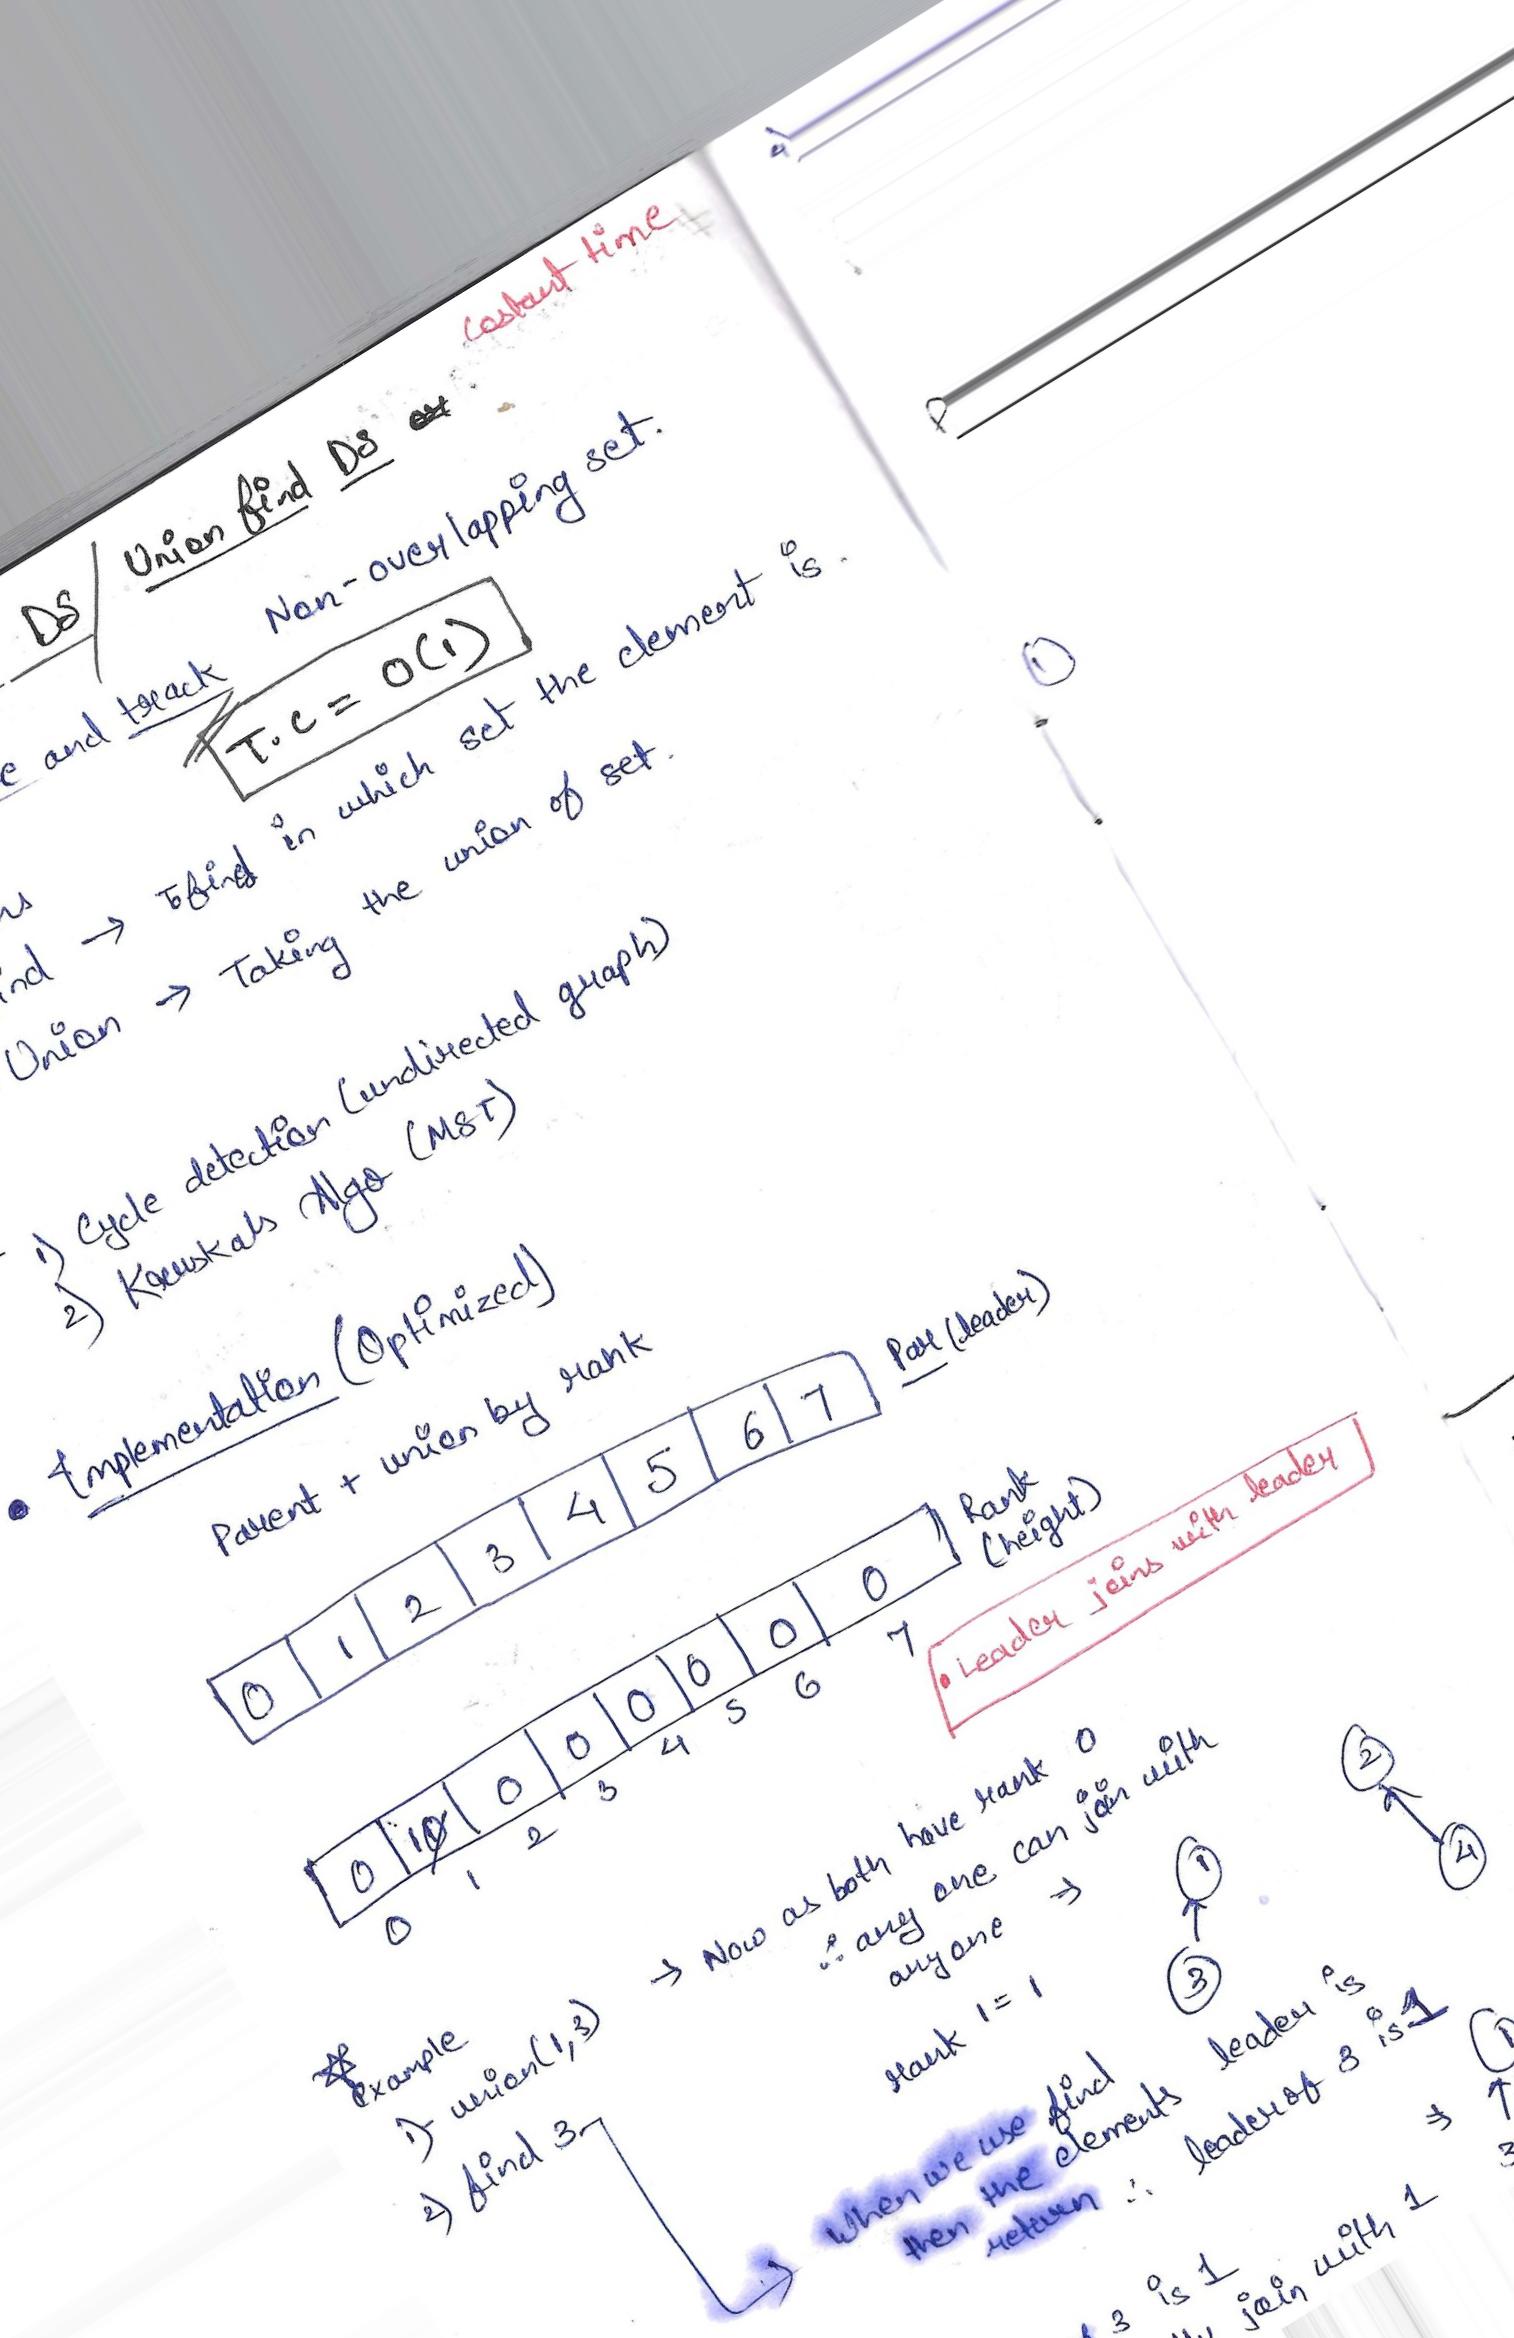 costant time
DS / Union find DS
e and track Non-overlapping set.
T.C = O(1)
ns
ind → find in which set the element is.
Union → Taking the union of set.
1) Cycle detection (undirected graph)
2) Kruskals Algo (MST)
• Implementation (Optimized)
Parent + union by rank
0 1 2 3 4 5 6 7 Par (leader)
0 1 0 0 0 0 0 0 0 Rank (height)
0 1 2 3 4 5 6 7
• Leader joins with leader
Example
1) union(1,3) → Now as both have rank 0
∴ any one can join with
anyone →
1
3
2
4
rank 1 = 1
2) find 3 → When we use find
then the elements leader is
return ∴ leader of 3 is 1
⇒ 1
3
3 is 1
join with 1
P
1